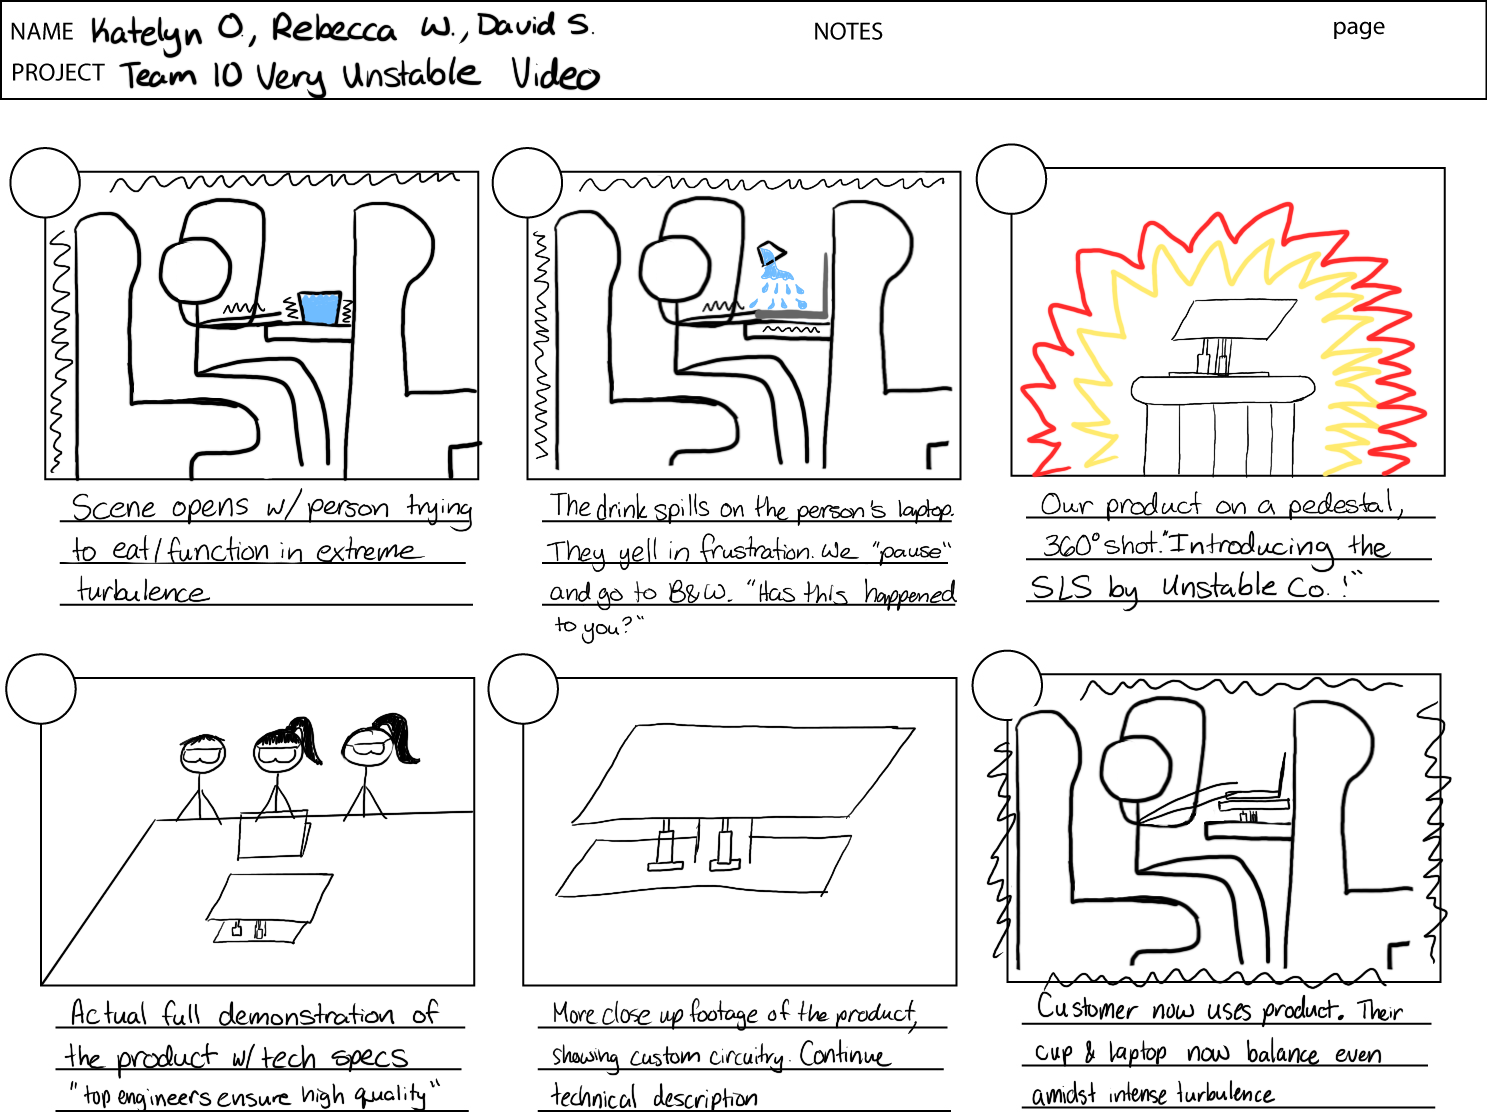 NAME Katelyn O., Rebecca W., David S.
NOTES
page
PROJECT Team 10 Very Unstable Video
Scene opens w/ person trying
to eat/function in extreme
turbulence
The drink spills on the person's laptop.
They yell in frustration. We "pause"
and go to B&W. "Has this happened
to you?"
Our product on a pedestal,
360° shot. "Introducing the
SLS by Unstable Co.!"
Actual full demonstration of
the product w/ tech specs
"top engineers ensure high quality"
More close up footage of the product,
showing custom circuitry. Continue
technical description
Customer now uses product. Their
cup & laptop now balance even
amidst intense turbulence